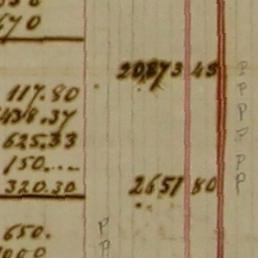 670
20873 45
P
117.80
P
438.37
P
625.33
P
150.....
P
320.30
2651 80
P
650.
P
P